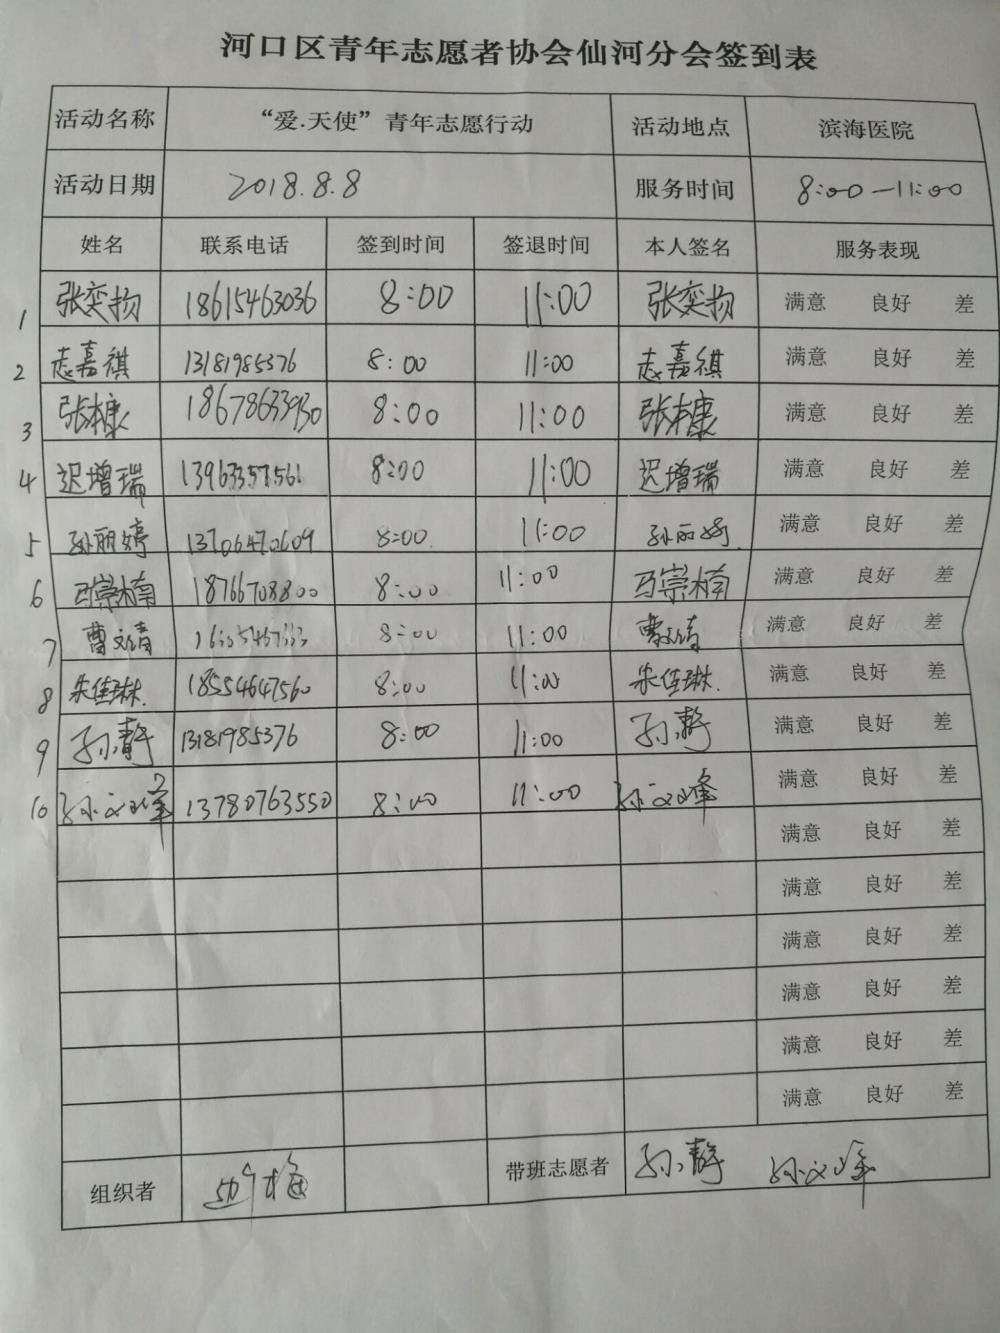 河口区青年志愿者协会仙河分会签到表
活动名称 “爱.天使”青年志愿行动 活动地点 滨海医院
活动日期 2018.8.8 服务时间 8:00—11:00
姓名 联系电话 签到时间 签退时间 本人签名 服务表现
1 张奕扬 18615463036 8:00 11:00 张奕扬 满意 良好 差
2 志嘉祺 13181985376 8:00 11:00 志嘉祺 满意 良好 差
3 张棣 18678633930 8:00 11:00 满意 良好 差
4 迟增瑞 13963357561 8:00 11:00 迟增瑞 满意 良好 差
5 孙丽婷 13706470609 8:00 11:00 孙丽婷 满意 良好 差
6 马崇楠 18766708800 8:00 11:00 马崇楠 满意 良好 差
7 曹文清 8:00 11:00 曹文清 满意 良好 差
8 朱佳琳. 18554647560 8:00 11:00 朱佳琳. 满意 良好 差
9 孙静 13181985376 8:00 11:00 孙静 满意 良好 差
10 孙文峰 13780763550 8:00 11:00 孙文峰 满意 良好 差
满意 良好 差
满意 良好 差
满意 良好 差
满意 良好 差
满意 良好 差
满意 良好 差
组织者 带班志愿者 孙静 孙文峰